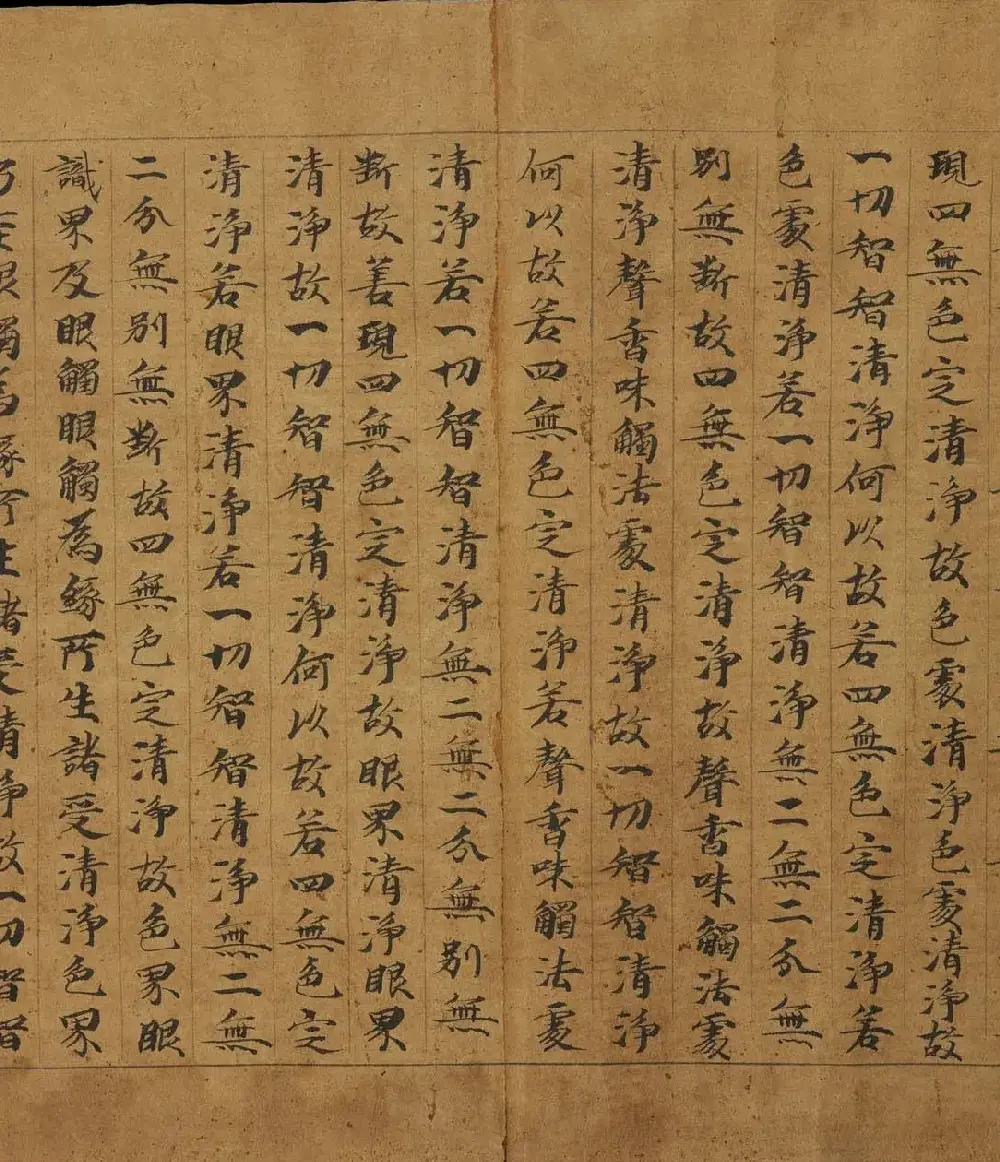 現四無色定清淨故色處清淨色處清淨故
一切智智清淨何以故若四無色定清淨若
色處清淨若一切智智清淨無二無二分無
別無斷故四無色定清淨故聲香味觸法處
清淨聲香味觸法處清淨故一切智智清淨
何以故若四無色定清淨若聲香味觸法處
清淨若一切智智清淨無二無二分無別無
斷故善現四無色定清淨故眼界清淨眼界
清淨故一切智智清淨何以故若四無色定
清淨若眼界清淨若一切智智清淨無二無
二分無別無斷故四無色定清淨故色界眼
識界及眼觸眼觸為緣所生諸受清淨色界
乃至眼觸為緣所生諸受清淨故一切智智